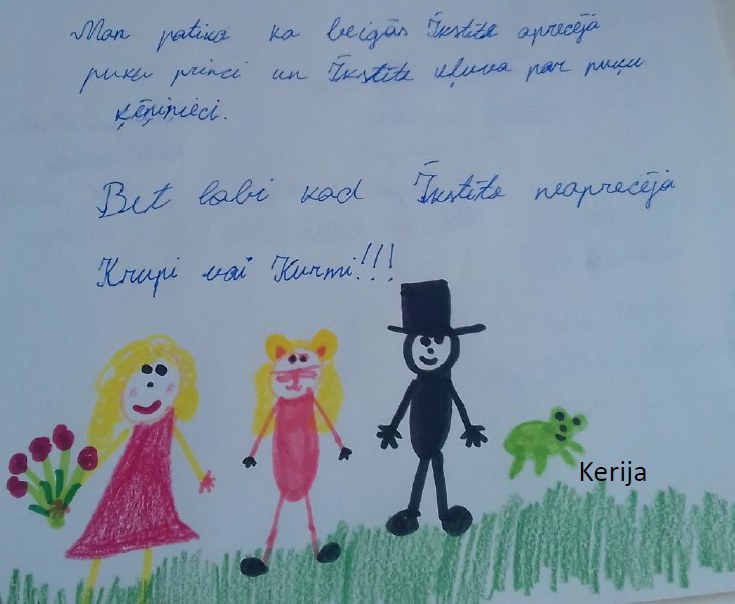 Man patika ka beigās Īkstīte aprecēja
puķu princi un Īkstīte kļuva par puķu
ķēniņieci.
Bet labi kad Īkstīte neaprecēja
Krupi vai Kurmi!!!
Kerija